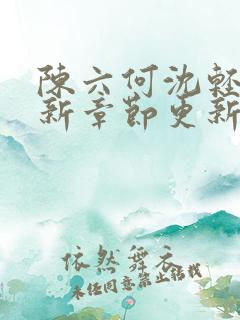 陳六何沈輕
新章節更新
依然舞衣
未经同意禁止转载